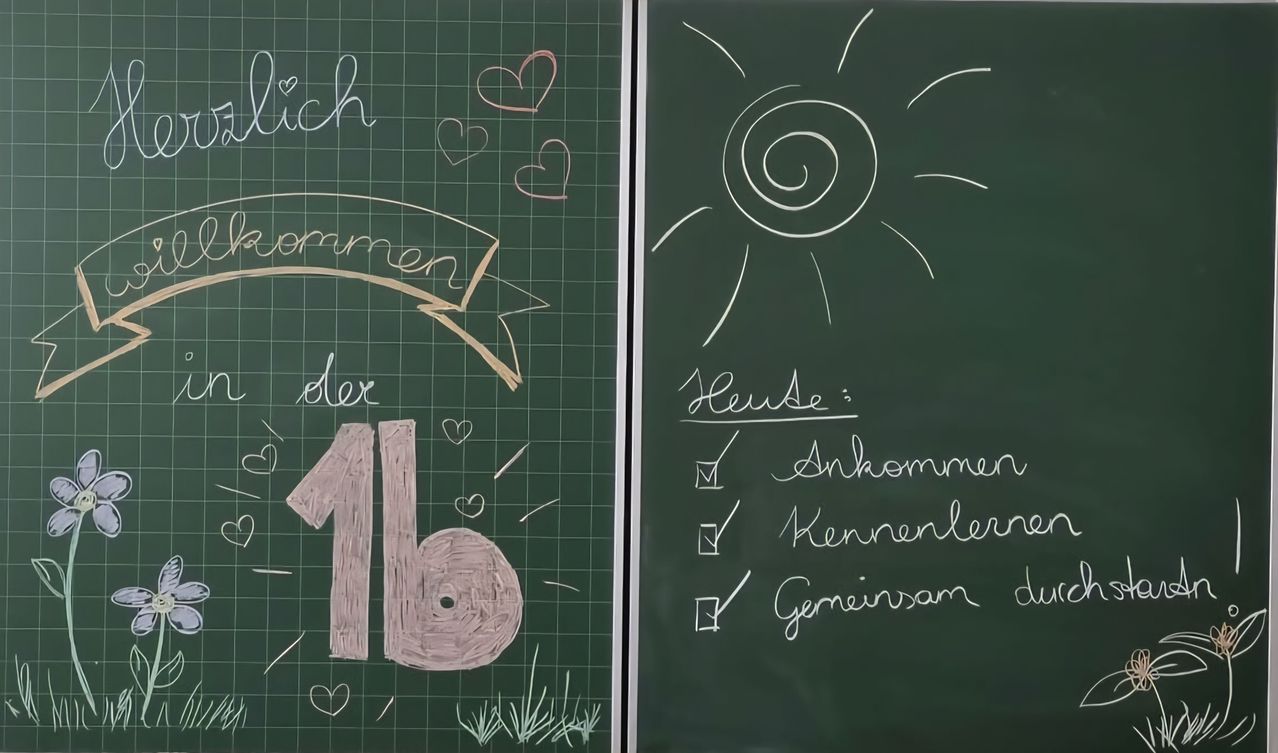 Herzlich
willkommen
in der
1b
Heute:
Ankommen
Kennenlernen
Gemeinsam durchstarten!